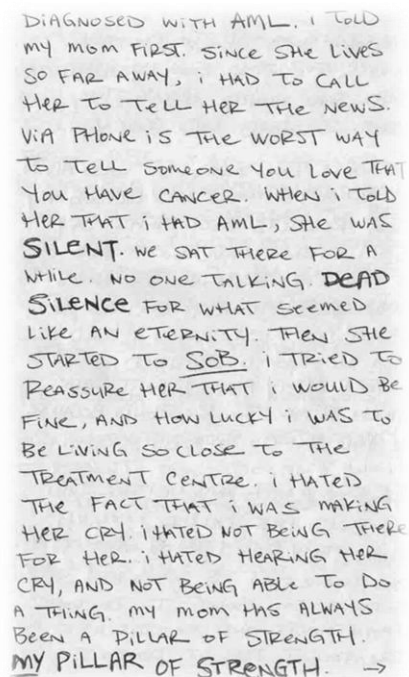 DIAGNOSED WITH AML. i TOLD
MY MOM FIRST. SINCE SHE LIVES
SO FAR AWAY, i HAD TO CALL
HER TO TELL HER THE NEWS.
ViA PHONE iS THE WORST WAY
TO TELL SOMEONE YOU LOVE THAT
YOU HAVE CANCER. WHEN i TOLD
HER THAT i HAD AML, SHE WAS
SILENT. WE SAT THERE FOR A
WHILE. NO ONE TALKING. DEAD
SILENCE FOR WHAT SEEMED
LIKE AN ETERNITY. THEN SHE
STARTED TO SOB. i TRIED TO
REASSURE HER THAT i WOULD BE
FINE, AND HOW LUCKY i WAS TO
BE LIVING SO CLOSE TO THE
TREATMENT CENTRE. i HATED
THE FACT THAT i WAS MAKING
HER CRY. i HATED NOT BEING THERE
FOR HER. i HATED HEARING HER
CRY, AND NOT BEING ABLE TO DO
A THING. MY MOM HAS ALWAYS
BEEN A PILLAR OF STRENGTH.
MY PILLAR OF STRENGTH. →